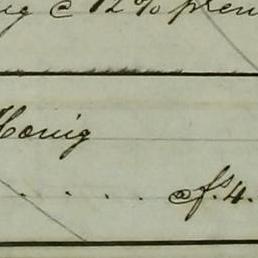 @ 12% prem
Honig
. . . . @ f. 4.